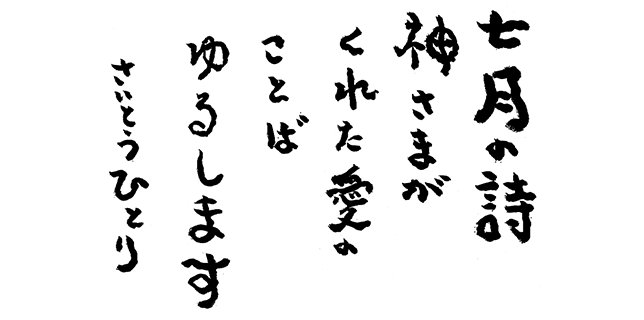 七月の詩
神さまが
くれた愛の
ことば
ゆるします
さいとうひとり